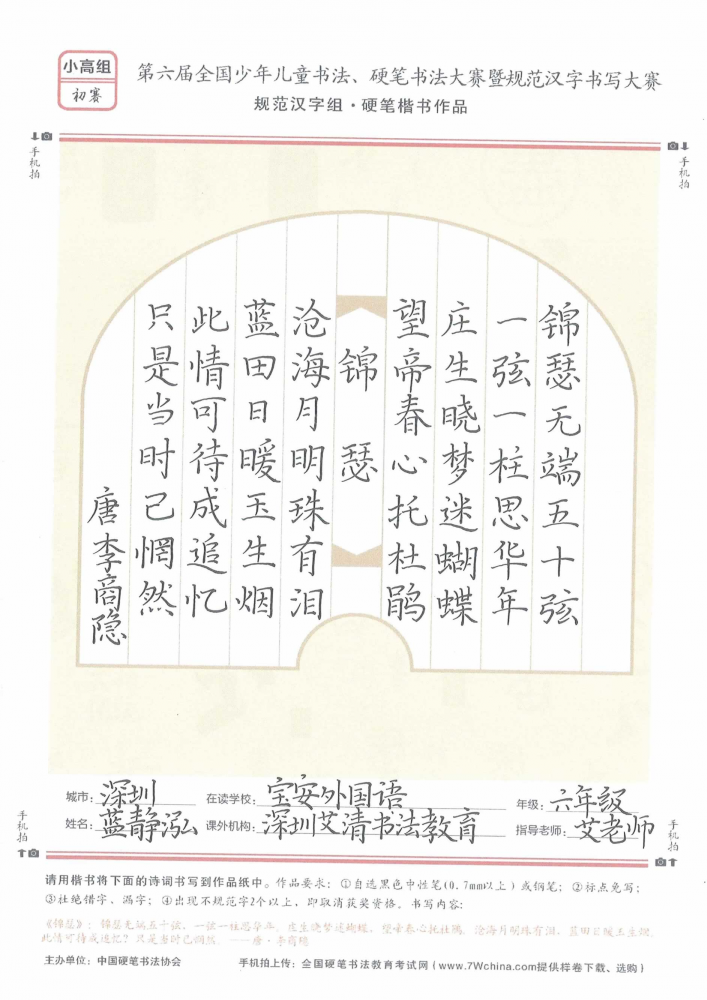 小高组
初赛
第六届全国少年儿童书法、硬笔书法大赛暨规范汉字书写大赛
规范汉字组·硬笔楷书作品
手机拍
手机拍
锦瑟无端五十弦
一弦一柱思华年
庄生晓梦迷蝴蝶
望帝春心托杜鹃
锦瑟
沧海月明珠有泪
蓝田日暖玉生烟
此情可待成追忆
只是当时已惘然
唐李商隐
城市：深圳 在读学校：宝安外国语 年级：六年级
姓名：蓝静泓 课外机构：深圳艾清书法教育 指导老师：艾老师
手机拍
手机拍
请用楷书将下面的诗词书写到作品纸中。作品要求：①自选黑色中性笔(0.7mm以上)或钢笔；②标点免写；
③杜绝错字、漏字；④出现不规范字2个以上，即取消获奖资格。书写内容：
《锦瑟》：锦瑟无端五十弦，一弦一柱思华年。庄生晓梦迷蝴蝶，望帝春心托杜鹃。沧海月明珠有泪，蓝田日暖玉生烟。
此情可待成追忆？只是当时已惘然。——唐·李商隐
主办单位：中国硬笔书法协会 手机拍上传：全国硬笔书法教育考试网（www.7Wchina.com提供样卷下载、选购）